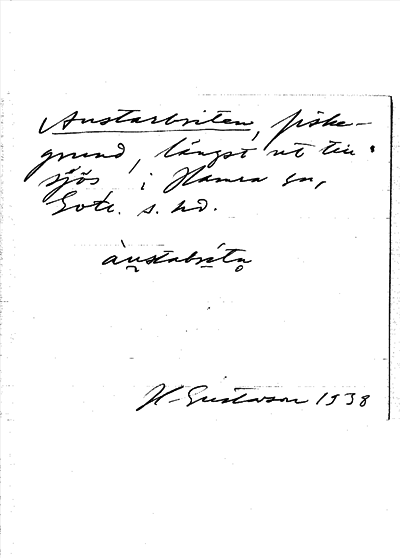 Austarbriten, fiske-
grund, längst ut till
sjös i Hamra sn,
Gotl. s. hd.
àu̯stabritḁ
H. Gustavson 1938